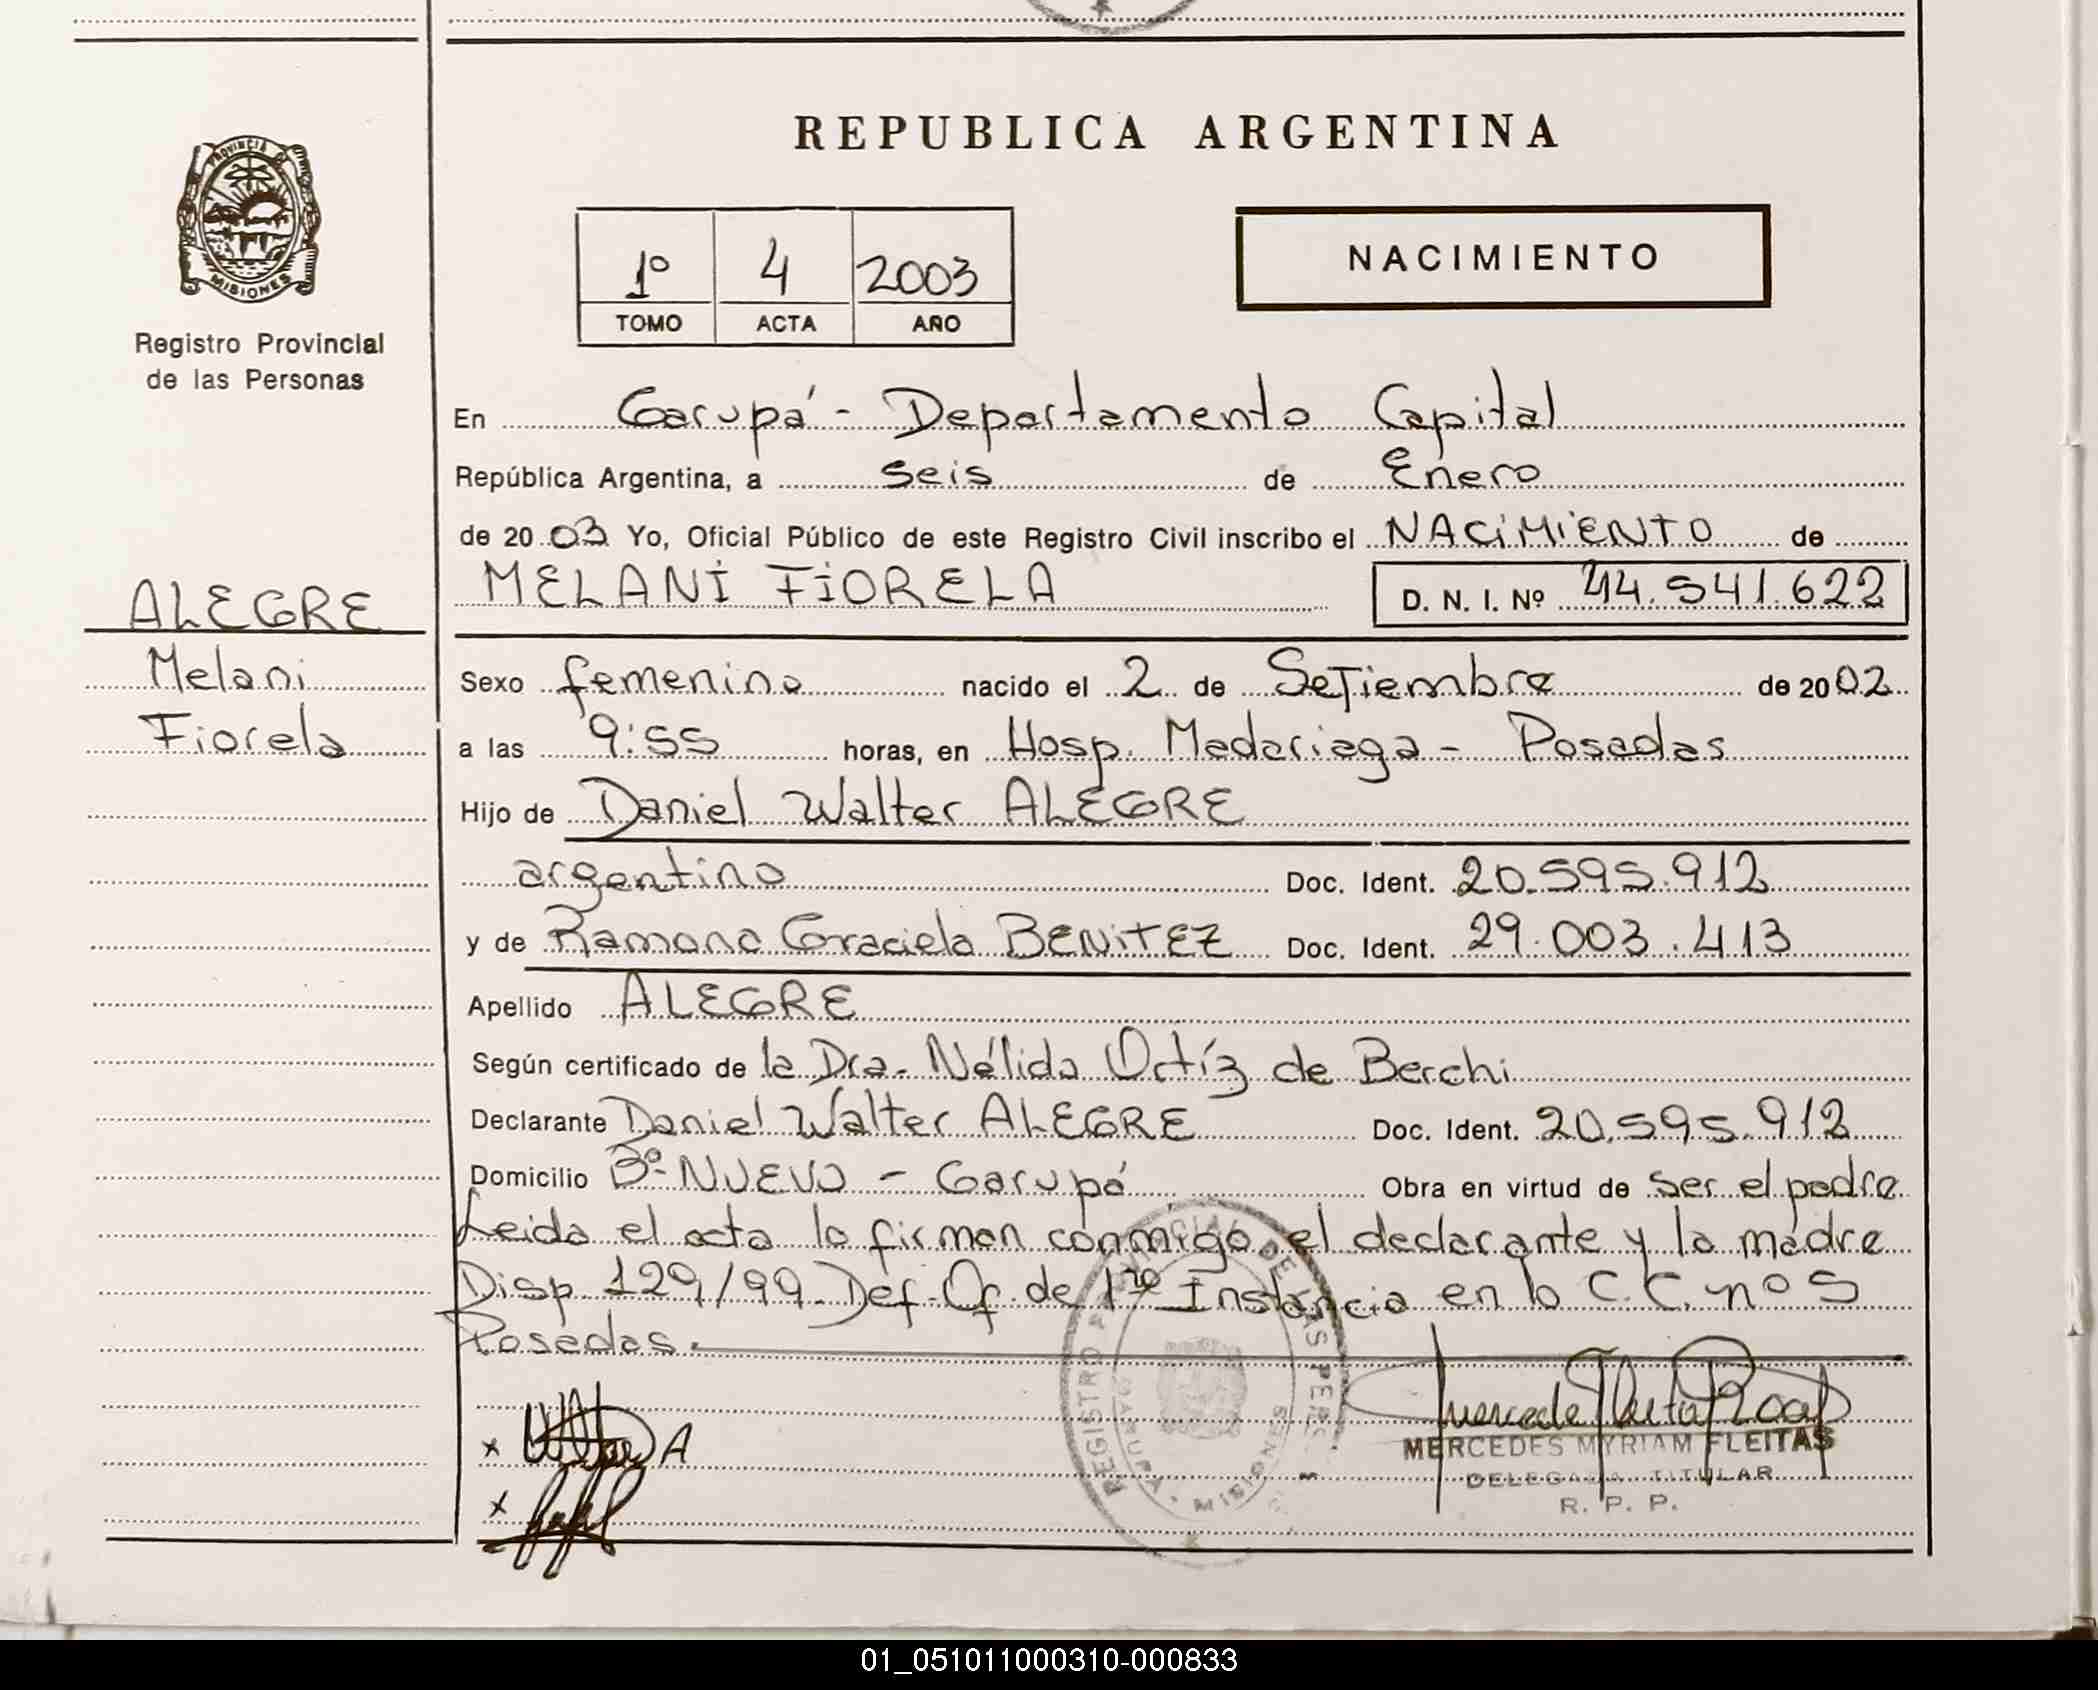 REPUBLICA ARGENTINA
PROVINCIA DE
MISIONES
Registro Provincial
de las Personas
1º 4 2003
TOMO ACTA AÑO
NACIMIENTO
En Garupá - Departamento Capital
República Argentina, a seis de Enero
de 20 03 Yo, Oficial Público de este Registro Civil inscribo el NACIMIENTO de
MELANI FIORELA D. N. I. Nº 44.541.622
ALEGRE
Melani
Fiorela
Sexo femenino nacido el 2 de Setiembre de 20 02
a las 9:55 horas, en Hosp. Madariaga - Posadas
Hijo de Daniel Walter ALEGRE
argentino Doc. Ident. 20.595.912
y de Ramona Graciela BENITEZ Doc. Ident. 29.003.413
Apellido ALEGRE
Según certificado de la Dra. Nélida Ortíz de Berchi
Declarante Daniel Walter ALEGRE Doc. Ident. 20.595.912
Domicilio Bº NUEVO - Garupá Obra en virtud de ser el padre
Leida el acta la firman conmigo el declarante y la madre
Disp. 129/99 Def. Of. de 1ra Instancia en lo C.C. nº 5
Posadas.
REGISTRO PROVINCIAL DE LAS PERSONAS
GARUPA - MISIONES
x
x
MERCEDES MYRIAM FLEITAS
DELEGADA TITULAR
R. P. P.
01_051011000310-000833